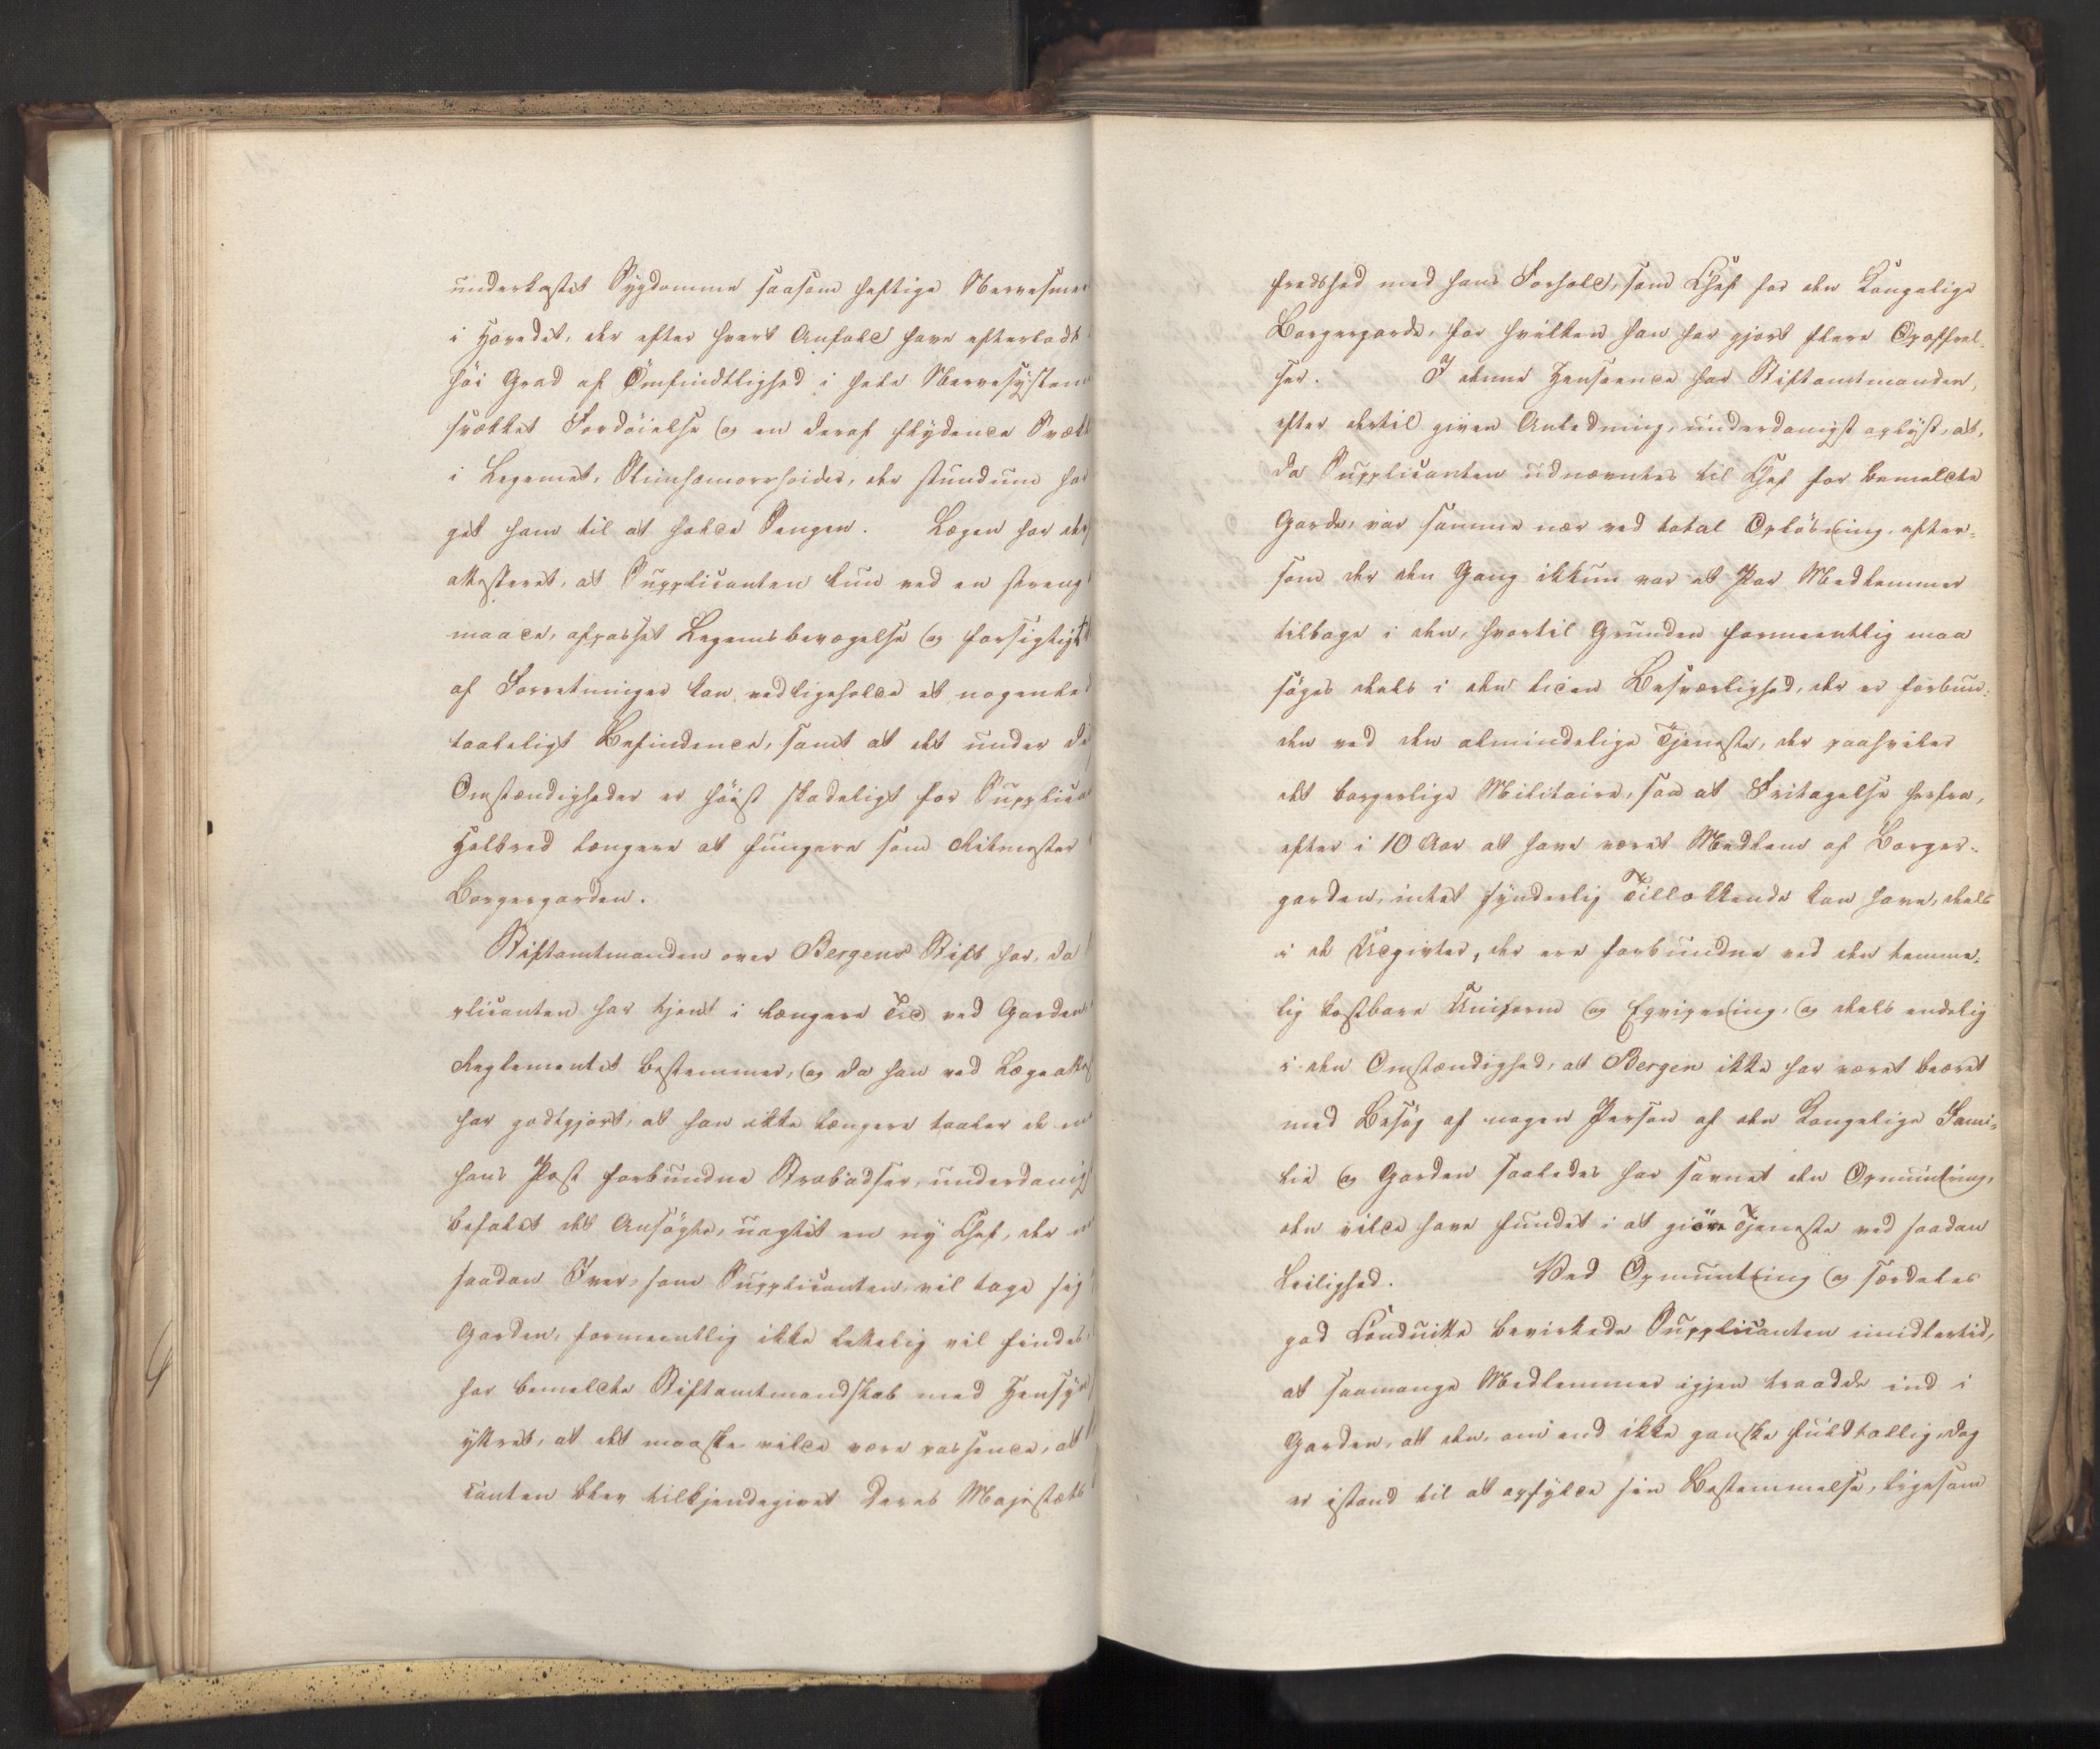 underkastet Sygdomme saasom heftige Nervesmer
i Hovedet, der efter hvert Anfald have efterladt
höi Grad af Ömfindtlighed i hele Nervesystem
svækket Fordöielse og en deraf flydende Svækk
i Legemet, Sliimhæmorrhoider, der stundum har
get ham til at holde Sengen. Lægen har der
attesteret, at Supplicanten kun ved en streng
maade, afpasset Legemsbevægelse og forsigtigt
af Forretninger kan vedligeholde et nogenle
taaleligt Befindende, samt at det under di
Omstændigheder er höist skadeligt for Supplica
Helbred længere at fungere som Ritmester
Borgergarden.
Stiftamtmanden over Bergens Stift har, da
plicanten har tjent i længere Tid ved Garden
Reglementet bestemmer, og da han ved Lægeattes
har godtgjort, at han ikke længere taaler de m
hans Post forbundne Strabadser, underdanigs
befalet det Ansögte, uagtet en ny Chef, der m
saadan Iver, som Supplicanten, vil tage sig
Garden, formeentlig ikke lettelig vil findes,
har bemeldte Stiftamtmandskab med Hensyn
yttret, at det maaske vilde være passende, at
canten blev tilkjendegivet Deres Majestæts
fredshed med hans Forhold, som Chef for den Kongelige
Borgergarde, for hvilken han har gjort flere Opoffrel-
ser. I denne Henseende har Stiftamtmanden,
efter dertil given Anledning, underdanigst oplyst, at,
da Supplicanten udnævntes til Chef for bemeldte
Garde, var samme nær ved total Oplösning, efter-
som der den Gang ikkun var et Par Medlemmer
tilbage i den, hvortil Grunden formeentlig maa
söges deels i den liden Besværlighed, der er forbun-
den ved den almindelige Tjeneste, der paahviler
det borgerlige Militaire, saa at Fritagelse herfra,
efter i 10 Aar at have været Medlem af Borger-
garden, intet synderlig Tillokkende kan have, deels
i de Udgivter, der ere forbundne ved den temme-
lig kostbare Uniform og Eqvipering, og deels endelig
i den Omstændighed, at Bergen ikke har været beæret
med Besög af nogen Person af den Kongelige Fami-
lie og Garden saaledes har savnet den Opmuntring,
den vilde have fundet i at giöre Tjeneste ved saadan
Leilighed. Ved Opmuntring og særdeles
god Conduitte bevirkede Supplicanten imidlertid,
at saamange Medlemmer igjen traadde ind i
Garden, at den, om end ikke ganske fuldtallig, dog
er istand til at opfylde sin Bestemmelse, ligesom